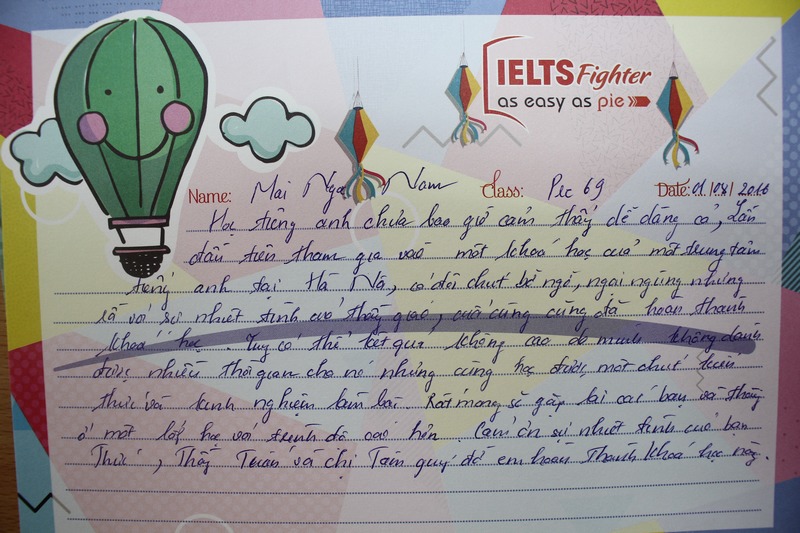 IELTS Fighter
as easy as pie
Name: Mai Nga Nam Class: Pec 69 Date: 01/08/2016
Học tiếng anh chưa bao giờ cảm thấy dễ dàng cả, Lần
đầu tiên tham gia vào một khoá học của một trung tâm
tiếng anh tại Hà Nội, có đôi chút bỡ ngỡ, ngại ngùng nhưng
rồi với sự nhiệt tình của thầy giáo, cuối cùng cũng đã hoàn thành
khoá học. Tuy có thể kết quả không cao do mình không dành
được nhiều thời gian cho nó nhưng cũng học được một chút kiến
thức và kinh nghiệm làm bài. Rất mong sẽ gặp lại các bạn và thầy
ở một lớp học với trình độ cao hơn. Cảm ơn sự nhiệt tình của bạn
Thức, Thầy Tuấn và chị Tâm giúp đỡ em hoàn thành khoá học này.